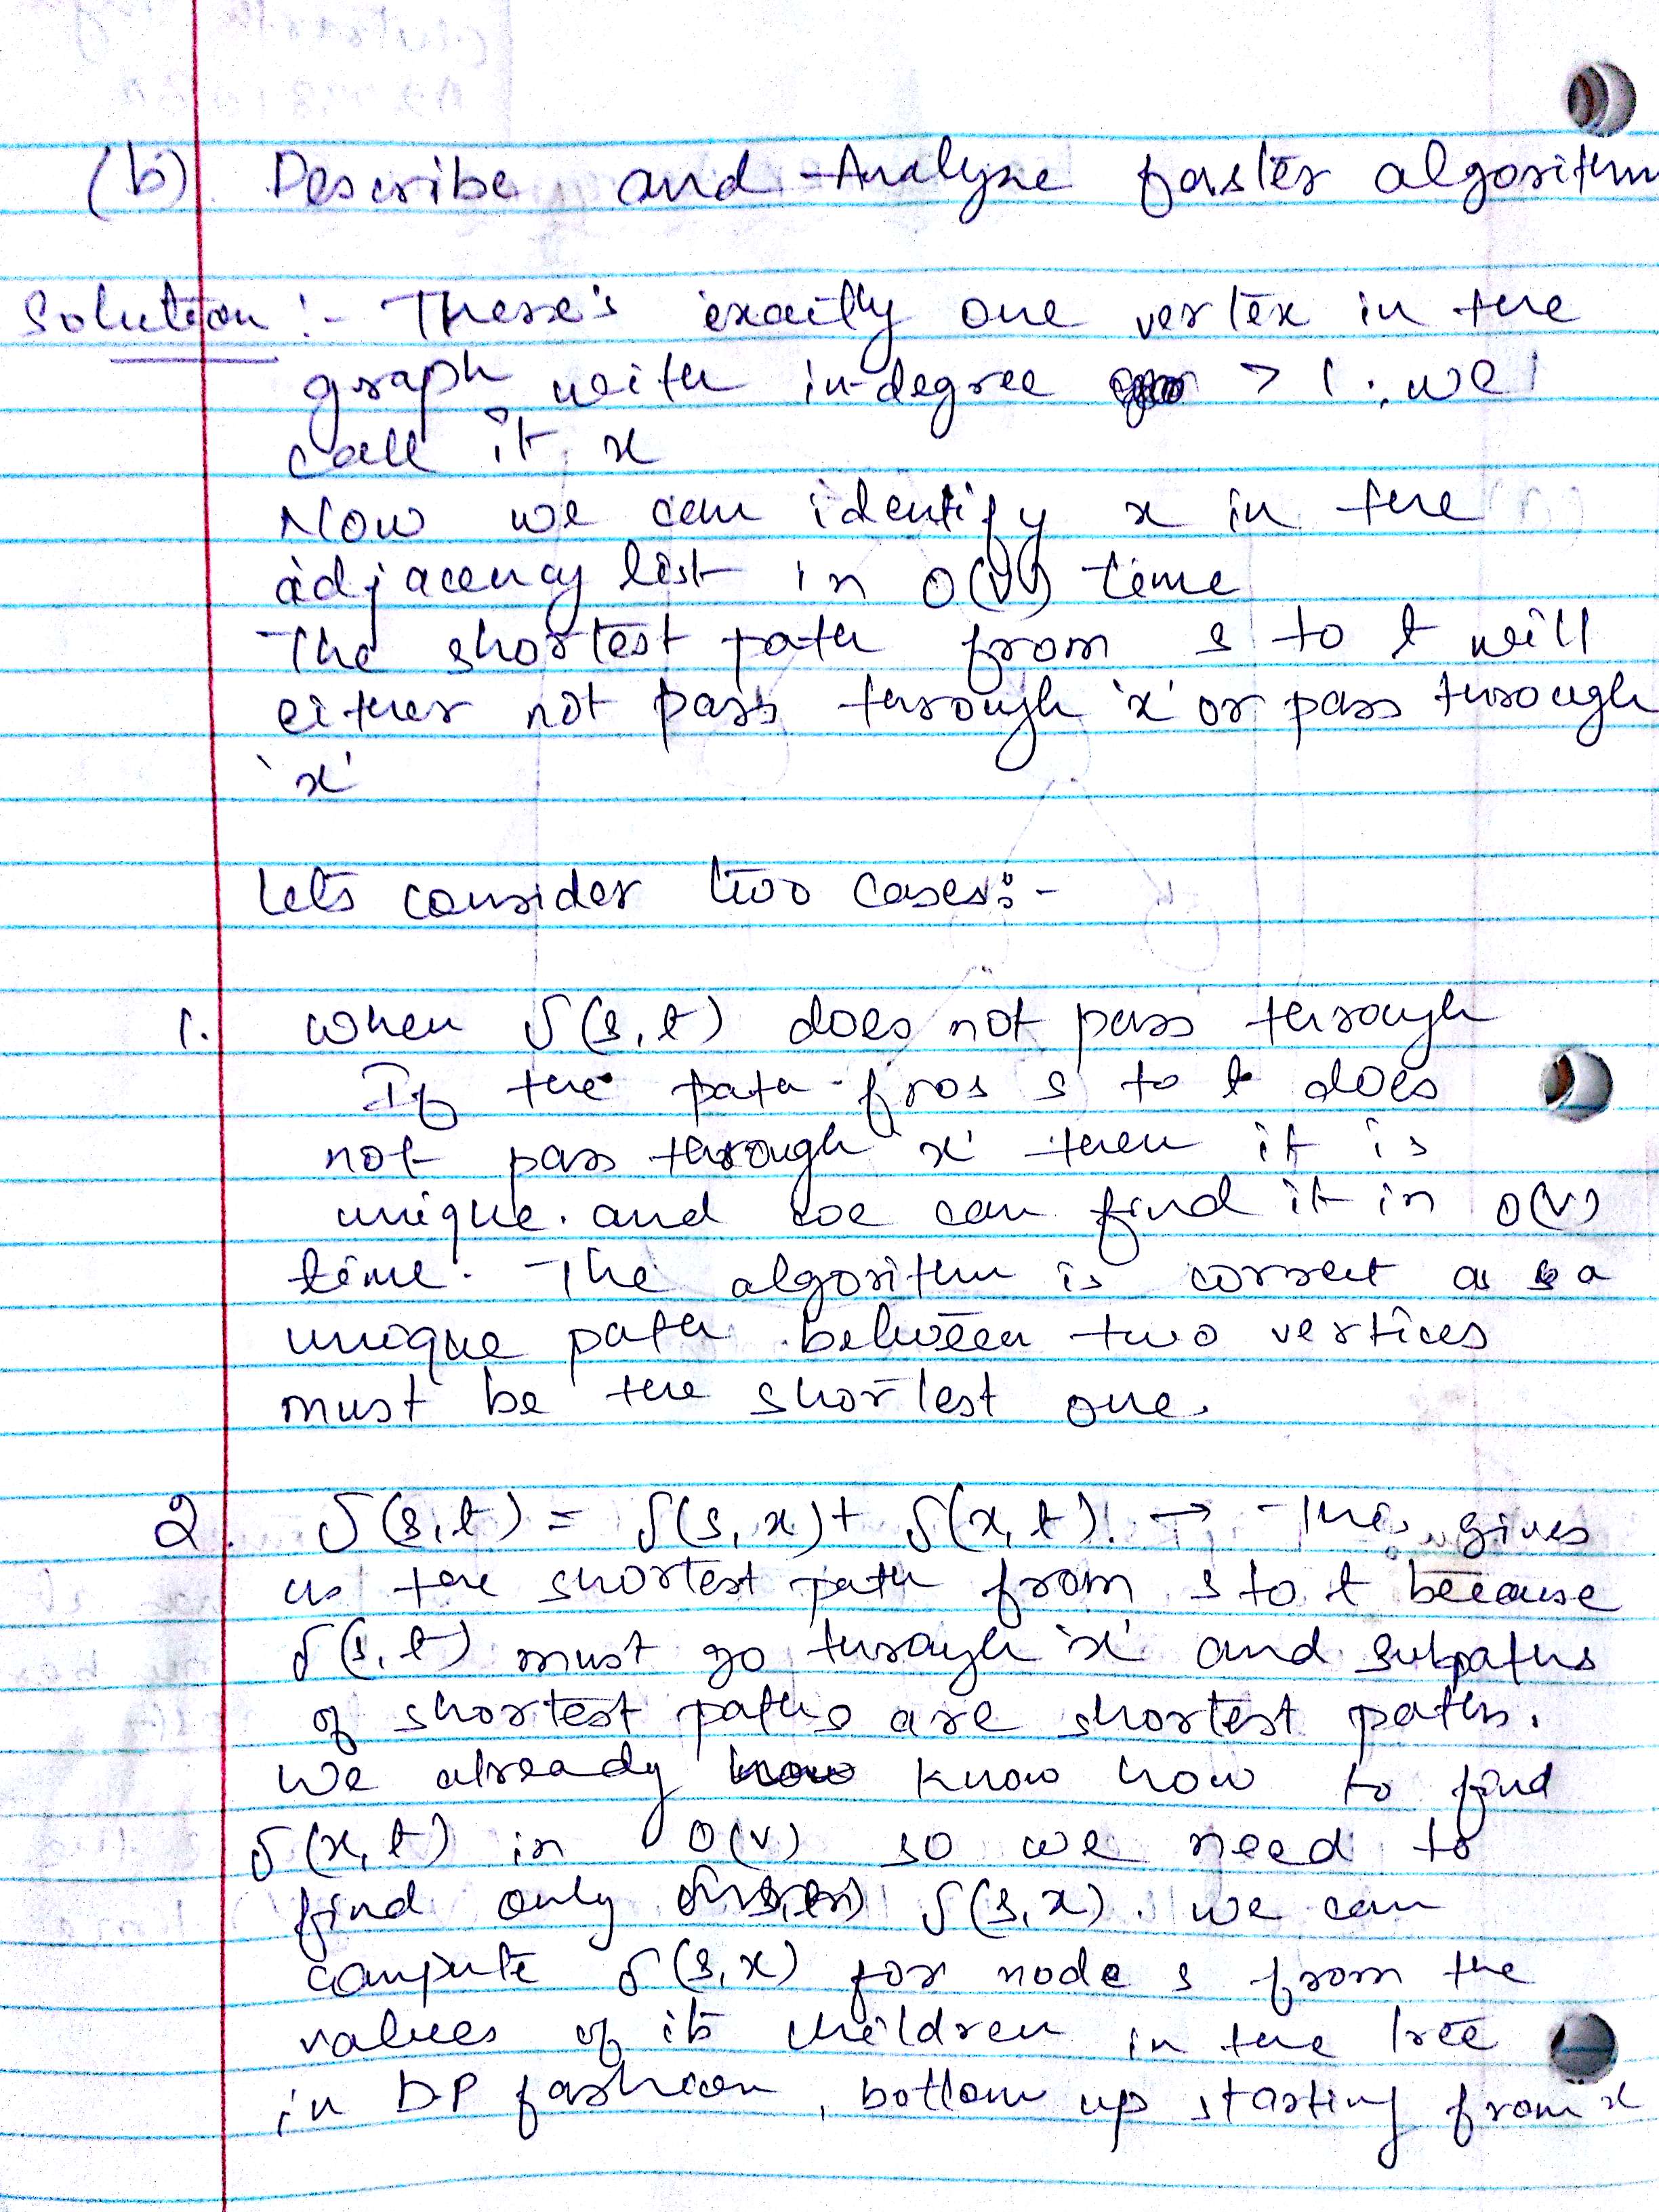 (b) Describe and Analyze faster algorithm
Solution :- There's exactly one vertex in the
graph with in-degree > 1 ; we
call it x
Now we can identify x in the
adjacency list in O(V) time
The shortest path from s to t will
either not pass through 'x' or pass through
'x'
Lets consider two cases:-
1. When δ(s,t) does not pass through
If the path fros s to t does
not pass through 'x' then it is
unique. and we can find it in O(V)
time. The algorithm is correct as a
unique path between two vertices
must be the shortest one.
2. δ(s,t) = δ(s,x) + δ(x,t). → This gives
us the shortest path from s to t because
δ(s,t) must go through 'x' and subpaths
of shortest paths are shortest paths.
We already know how to find
δ(x,t) in O(V) so we need to
find only δ(s,x). We can
compute δ(s,x) for node s from the
values of its children in the tree
in DP fashion, bottom up starting from x